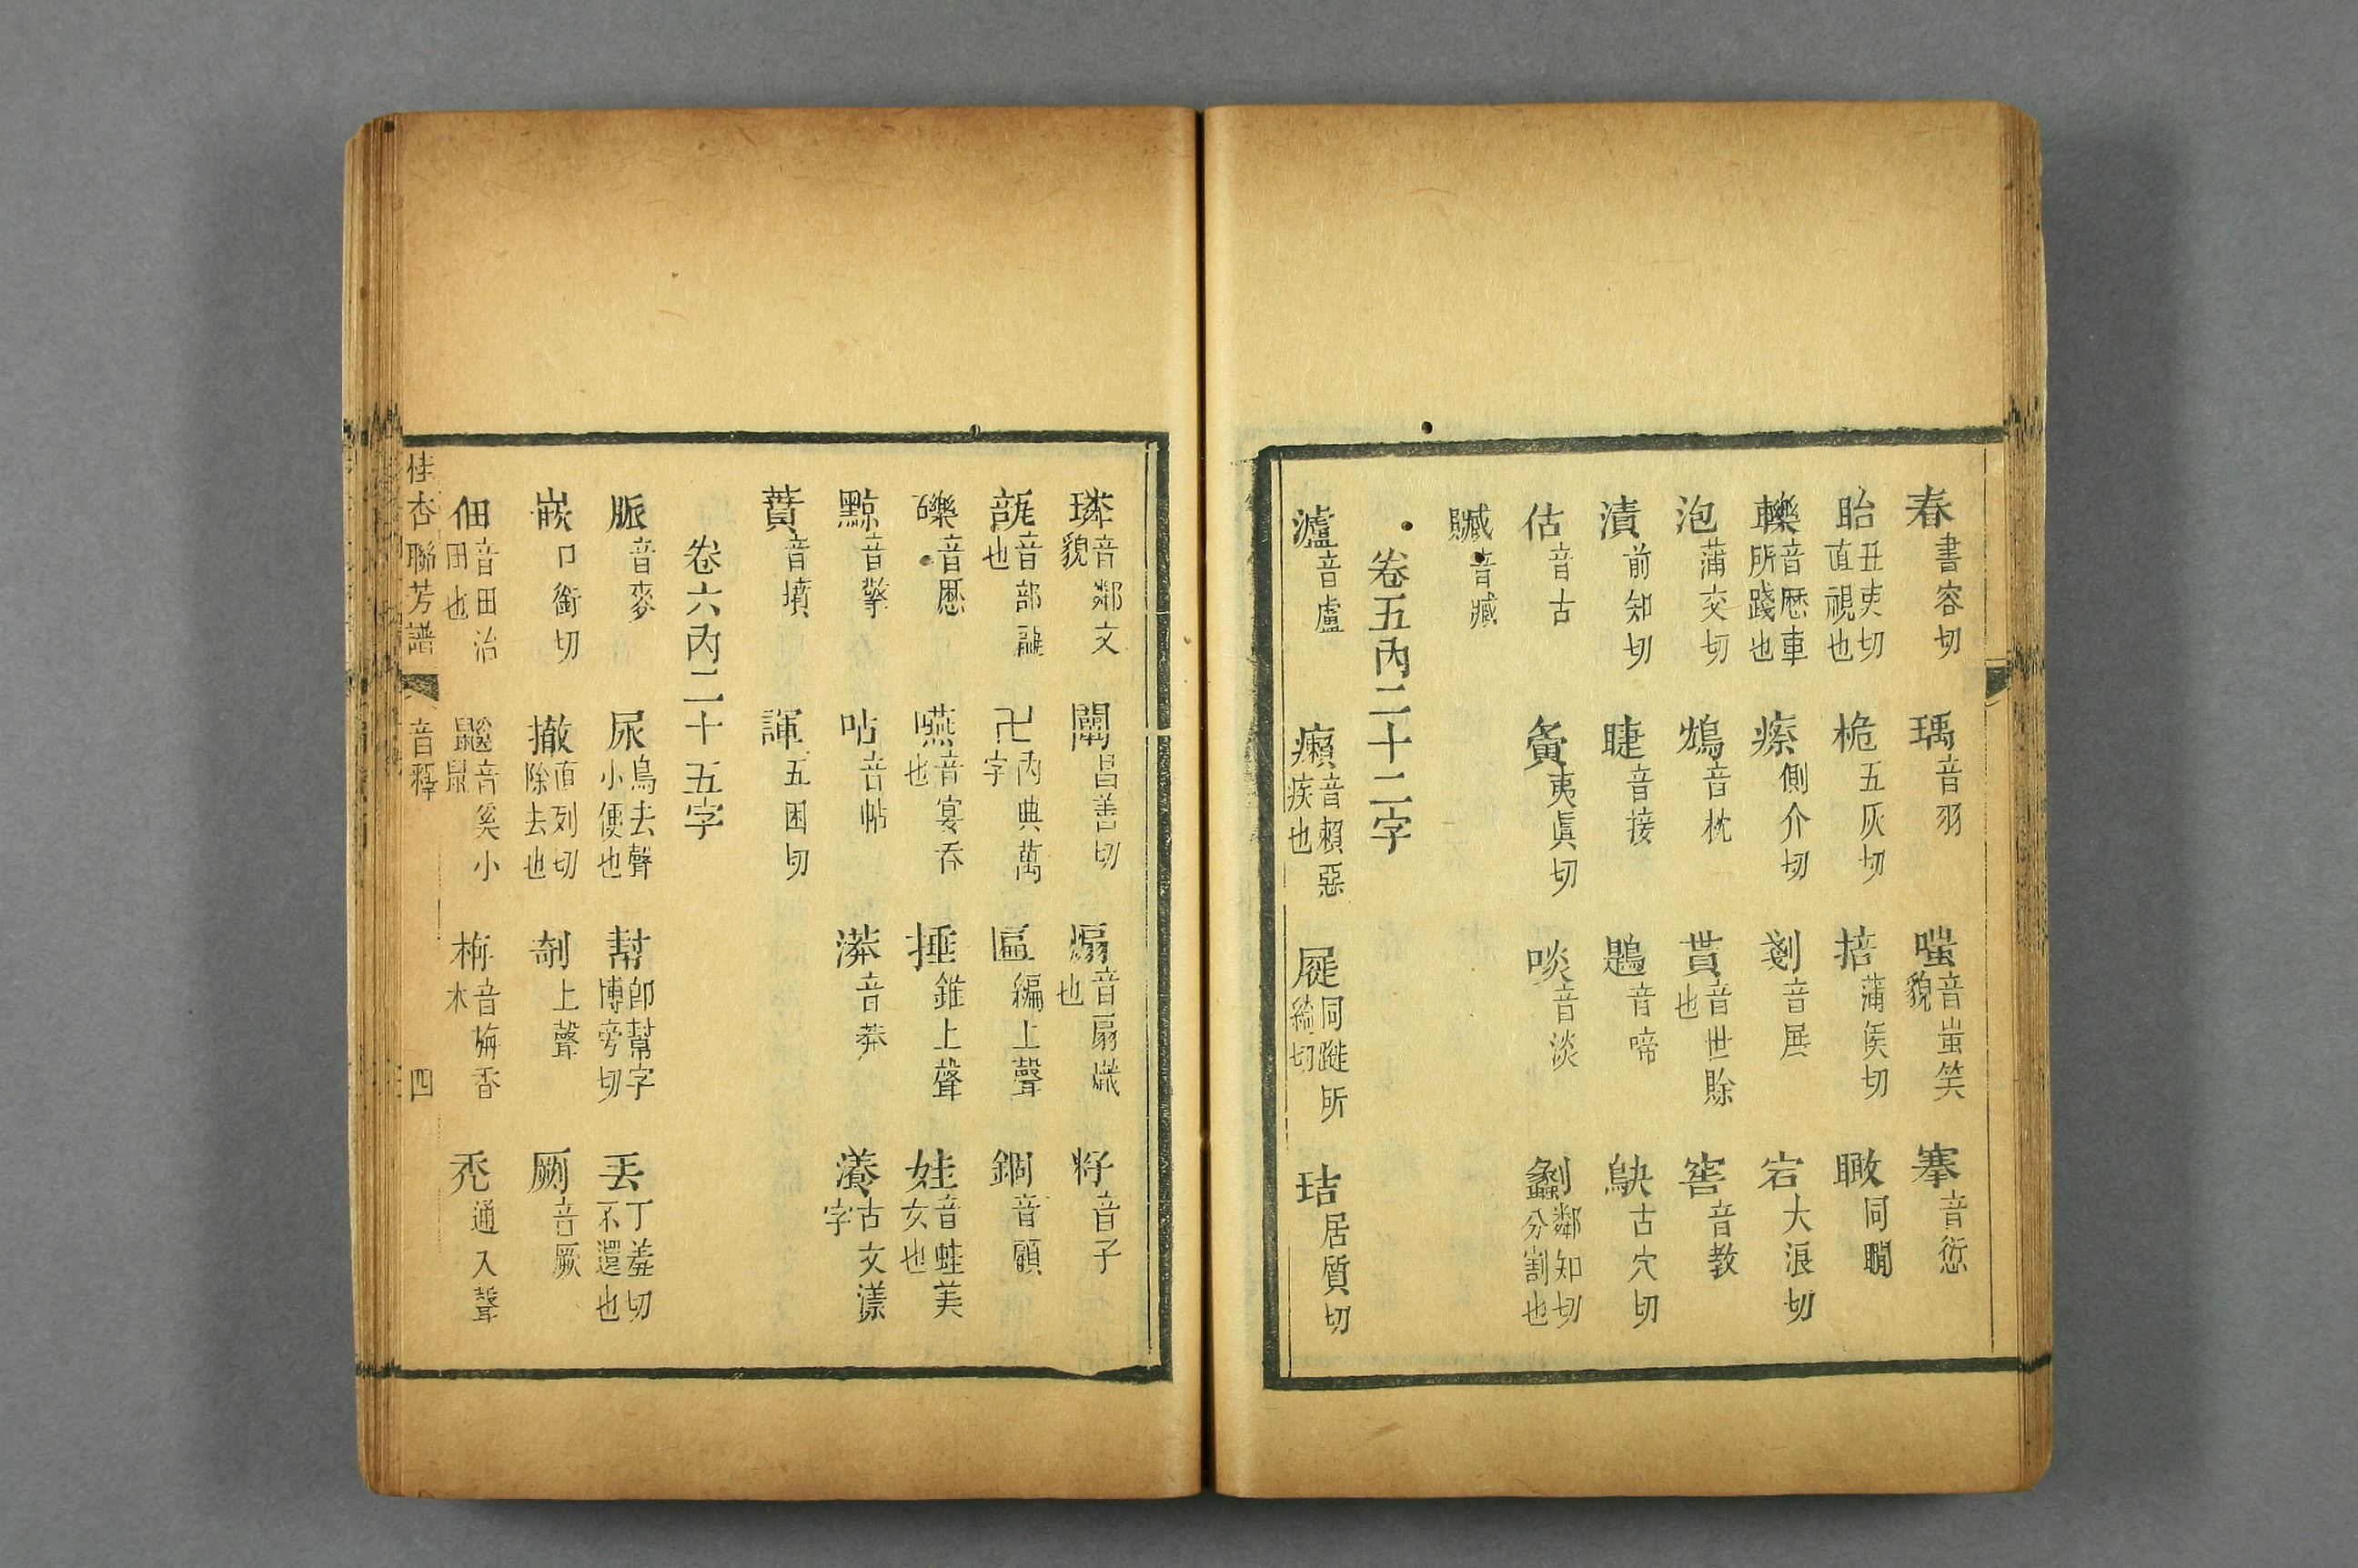 舂書容切　瑀音羽　嗤音蚩笑貌　搴音愆
眙丑吏切直視也　桅五灰切　掊蒲侯切　瞰同瞯
轢音歷車所踐也　瘵側介切　剗音展　宕大浪切
泡蒲交切　鴆音枕　貰音世賒也　窖音教
漬前知切　睫音接　鶗音啼　鴃古穴切
估音古　夤夷眞切　啖音淡　劙鄰知切分割也
贓音臧
卷五內二十二字
瀘音盧　癩音賴惡疾也　屣同蹝所縰切　玤居質切
璘音鄰文貌　闡昌善切　煽音扇熾也　籽音子
瓿音部甌也　卍內典萬字　匾編上聲　錮音顧
礫音歷　嚥音宴吞也　捶錐上聲　娃音蛙美女也
黥音擎　呫音帖　漭音莽　瀁古文漾字
蕡音墳　諢五困切
卷六內二十五字
脈音麥　尿鳥去聲小便也　幇卽幫字博旁切　丟丁羞切不還也
嵌口銜切　撤直列切除去也　剞上聲　劂音厥
佃音田治田也　鼷音奚小鼠　栴音旃香木　禿通入聲
佳杏聯芳譜　音釋　四